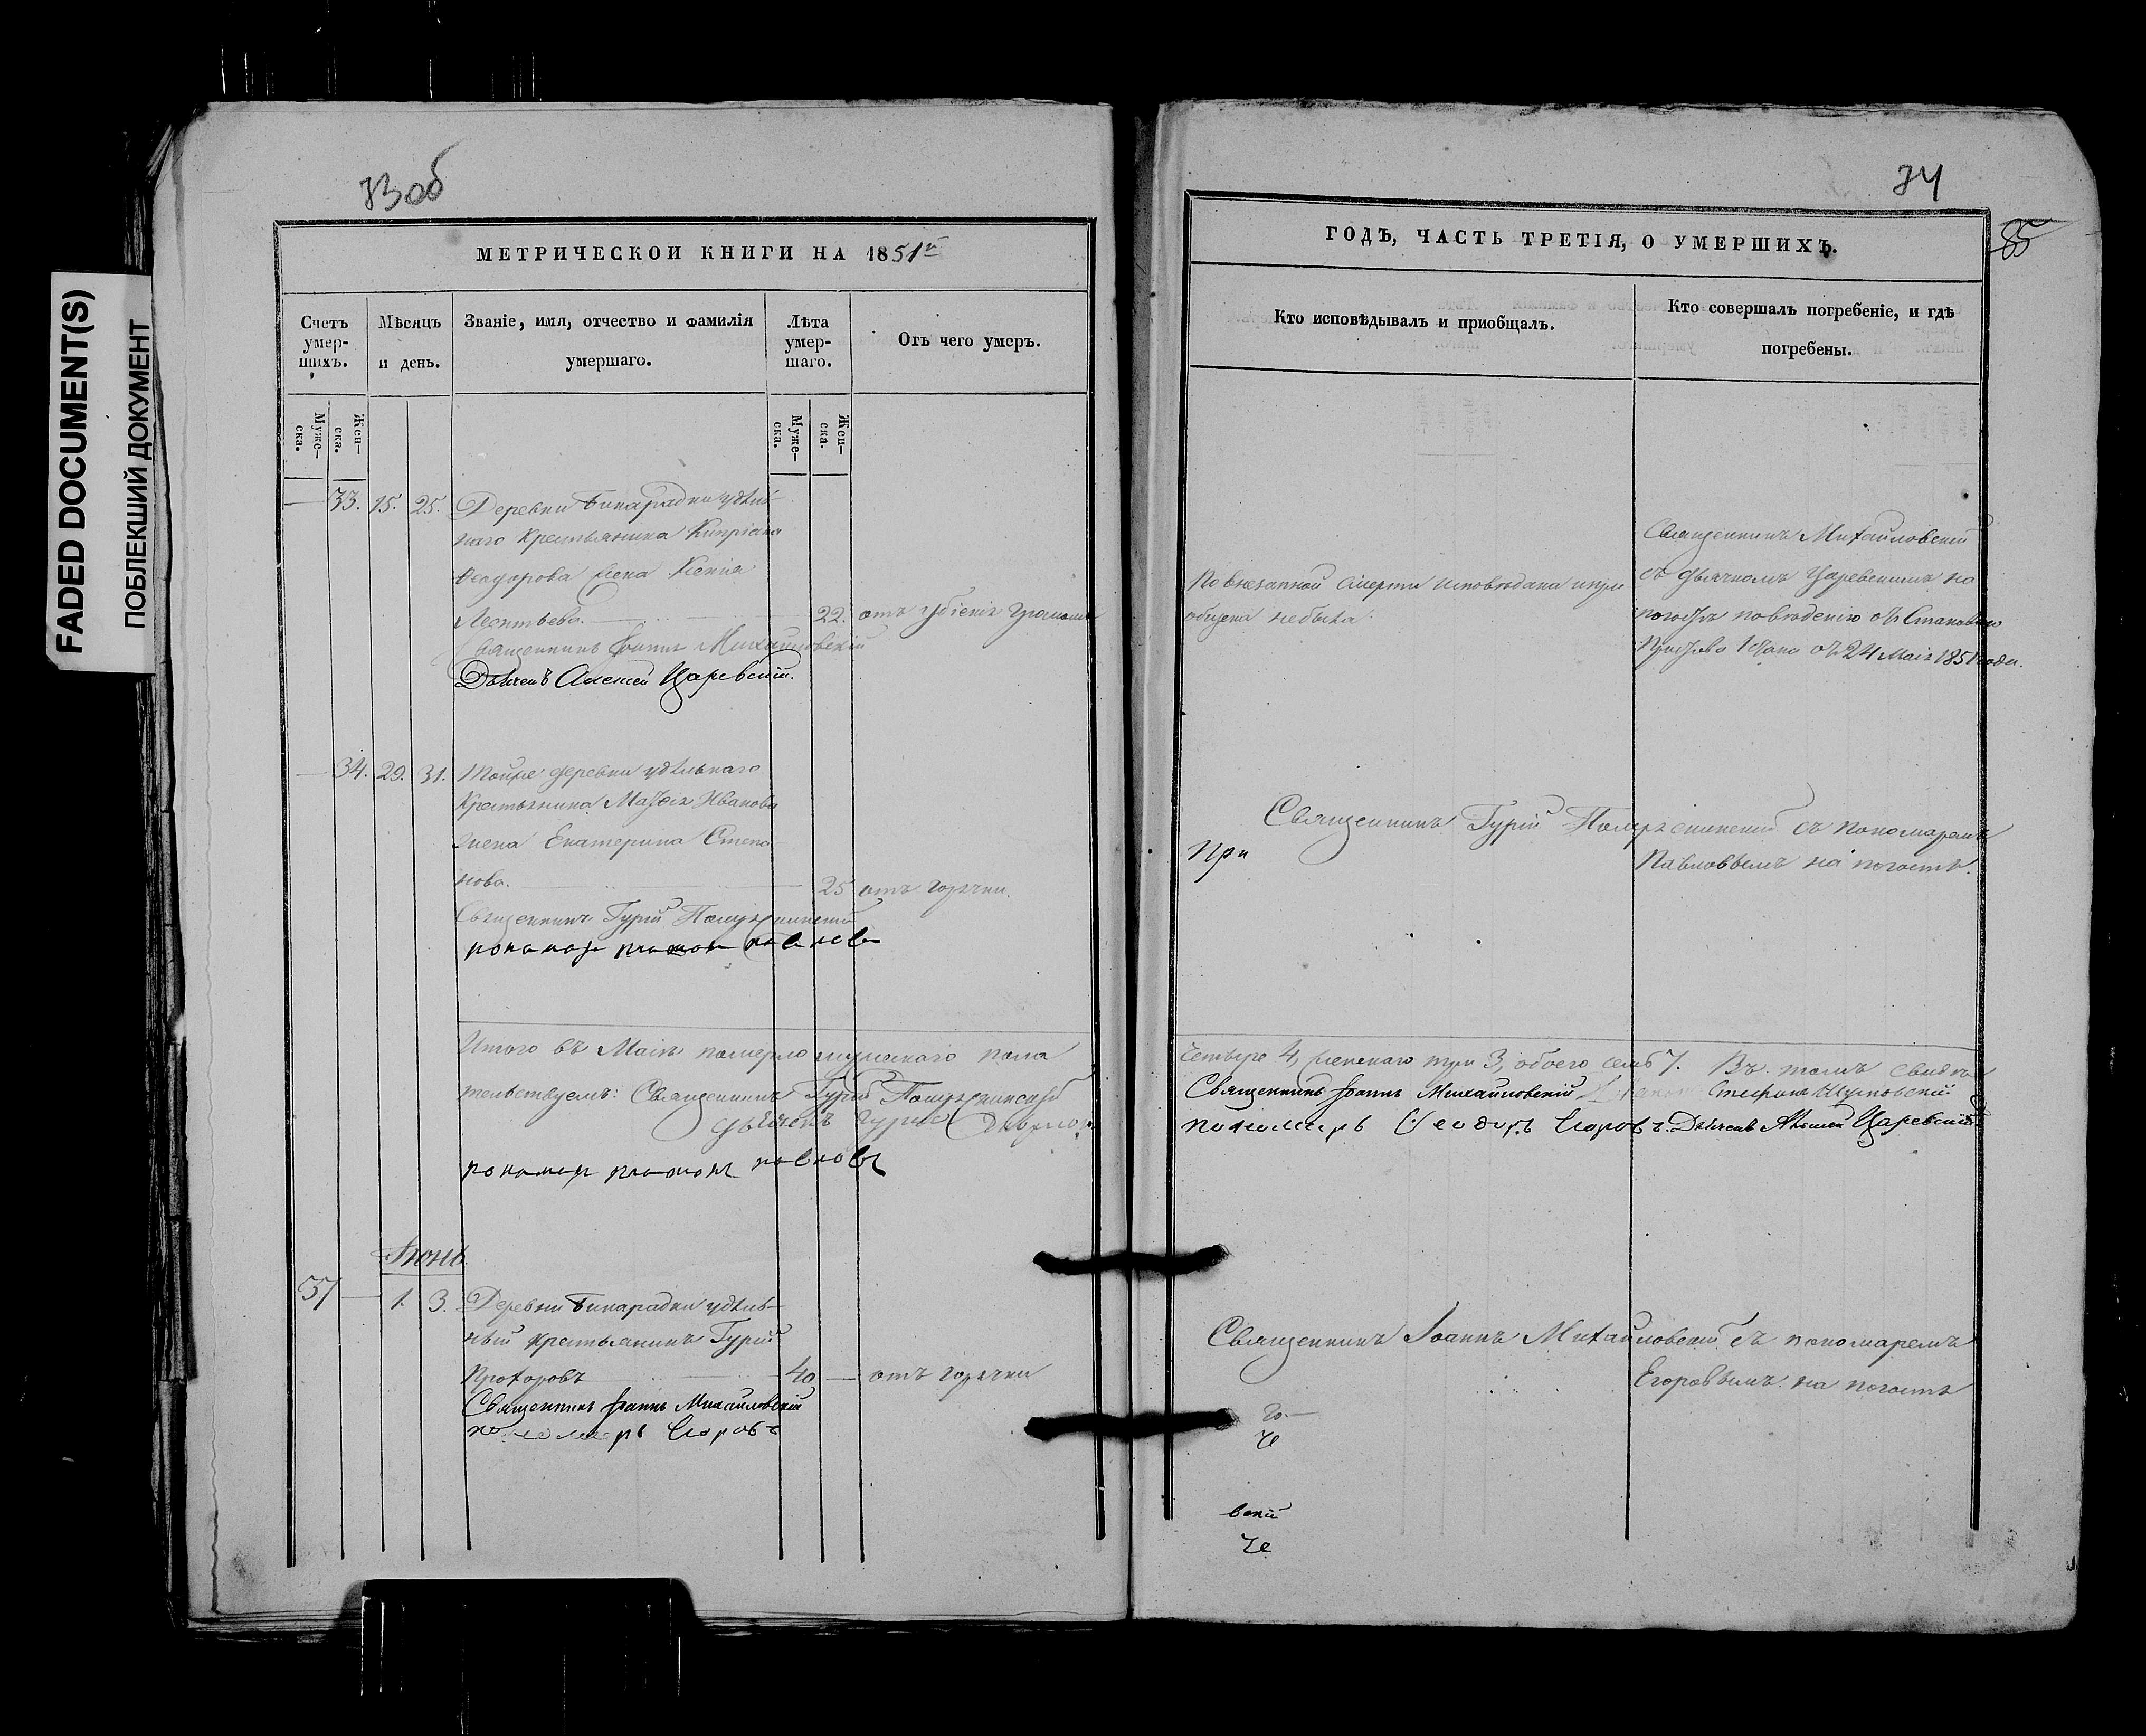 FADED DOCUMENT(S)
ПОБЛЕКШИЙ ДОКУМЕНТ
73 об
МЕТРИЧЕСКОЙ КНИГИ НА 1851й
Счетъ умер-
шихъ.
Мѣсяцъ
и день.
Званіе, имя, отчество и фамилія
умершаго.
Лѣта
умер-
шаго.
Отъ чего умеръ.
Муже-
ска.
Жен-
ска.
Муже-
ска.
Жен-
ска.
33. 15. 25. Деревни Бинарадки удѣль-
наго крестьянина Кипріана
Ѳеодорова жена Ксенія
Леонтьева. 22. отъ убіенія громомъ
Священникъ Іоаннъ Михайловскій
Дьячекъ Алексей Царевскій.
34. 29. 31. Тойже деревни удѣльнаго
крестьянина Иванова
жена Екатерина Степа-
нова. 25 отъ горячки.
Священникъ Гурій
пономарь Платонъ Павловъ
Итого въ Маіѣ померло мужескаго пола
тельствуемъ: Священникъ Гурій
дьячекъ
пономарь Платонъ Павловъ
Іюнь
37 1. 3. Деревни Бинарадки удѣль-
ный крестьянинъ Гурій
Прохоровъ 40 отъ горячки
Священникъ Іоаннъ Михайловскій
пономарь Егоровъ
74
85
ГОДЪ, ЧАСТЬ ТРЕТІЯ, О УМЕРШИХЪ.
Кто исповѣдывалъ и приобщалъ.
Кто совершалъ погребеніе, и гдѣ
погребены.
По внезапной смерти исповѣдана и при
общена небыла.
Священникъ Михайловскій
съ дьячкомъ Царевскимъ на
погостѣ по вѣденію отъ Становаго
Пристава 1 Стана отъ 24 Маія 1851 года.
Священникъ Гурій съ пономаремъ
При
Павловымъ на погостѣ.
Четыре 4, женскаго три 3, обоего семь 7. Въ томъ свидѣ
Священникъ Іоаннъ Михайловскій Стефанъ
пономарь Ѳеодоръ Егоровъ. Дьячекъ Алексей Царевскій
Священникъ Іоаннъ Михайловскій съ пономаремъ
Егоровымъ на погостѣ
го
че
вскій
че